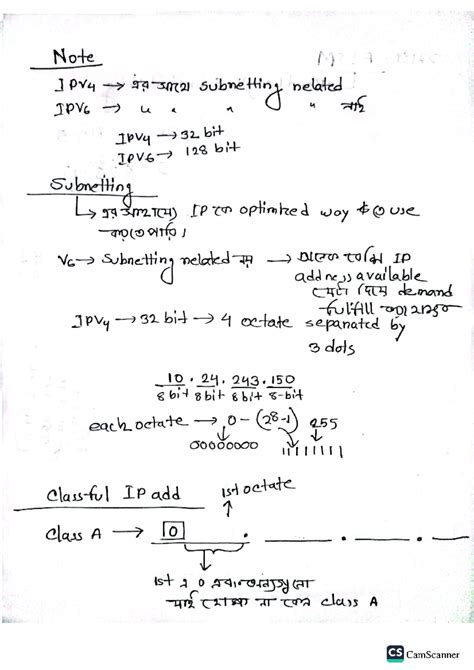 Note
IPV4 → এর সাথে subnetting related
IPV6 → " " " " নাই
IPV4 → 32 bit
IPV6 → 128 bit
Subnetting
↳ এর মাধ্যমে IP কে optimized way এ use
করতে পারি।
V6 → Subnetting related নয় → অনেক বেশি IP
address available
যেটা দিয়ে demand
fulfill করা
IPV4 → 32 bit → 4 octate separated by
3 dots
10 . 24 . 243 . 150
8 bit 8 bit 8 bit 8-bit
each octate → 0 - (2^8-1) 255
00000000 11111111
Class-ful IP add
1st octate
Class A → 0 . . .
1st এ 0 এবং
যাই হোক না কেন class A
CS CamScanner